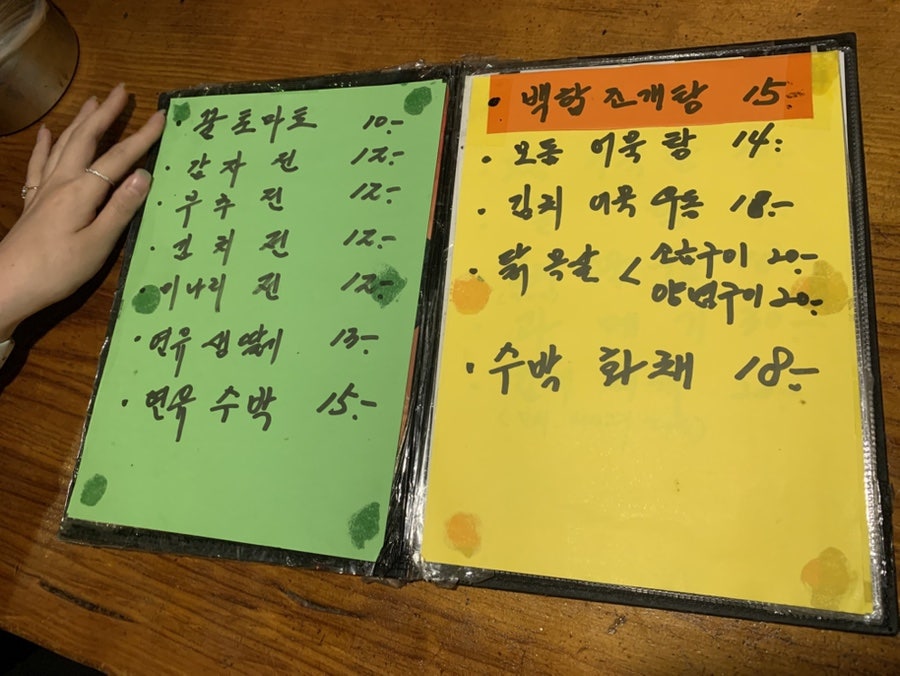 · 꿀토마토 10.-
· 감자전 12.-
· 부추전 12.-
· 김치전 12.-
· 미나리전 12.-
· 연유 생딸기 13.-
· 연유 수박 15.-
· 백합 조개탕 15.-
· 모듬 어묵탕 14.-
· 김치 어묵 우동 18.-
· 닭 목살 < 소금구이 20.-
양념구이 20.-
· 수박 화채 18.-